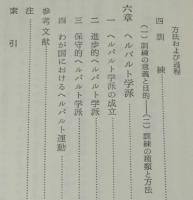 方法および過程
四 訓練
(一) 訓練の意義と目的――(二) 訓練の種類と方法
六章 ヘルバルト学派
一 ヘルバルト学派の成立
二 進歩的ヘルバルト学派
三 保守的ヘルバルト学派
四 わが国におけるヘルバルト運動
参考文献
注
索引